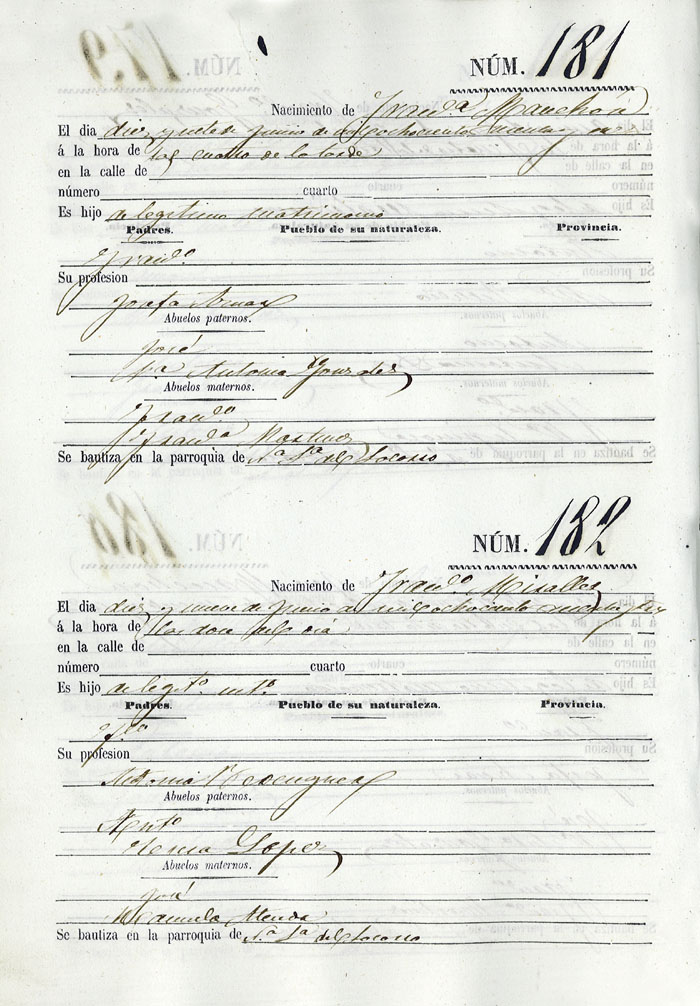 NÚM. 181
Nacimiento de Fran.ca Manchón
El dia diez y siete de Junio de mil ochociento
á la hora de las cuatro de la tarde
en la calle de
número cuarto
Es hijo de legitimo matrimonio
Padres. Pueblo de su naturaleza. Provincia.
Fran.co
Su profesion
Josefa
Abuelos paternos.
José
Antonia
Abuelos maternos.
Fran.co
Fran.ca Martinez
Se bautiza en la parroquia de N.a S.a del Socorro
NÚM. 182
Nacimiento de Fran.co Miralles
El dia diez y nueve de Junio de mil ochociento
á la hora de las doce del dia
en la calle de
número cuarto
Es hijo de legit.o mt.o
Padres. Pueblo de su naturaleza. Provincia.
Su profesion
Antonia Berenguer
Abuelos paternos.
Ant.o
Lopez
Abuelos maternos.
José
Manuela
Se bautiza en la parroquia de N.a S.a del Socorro